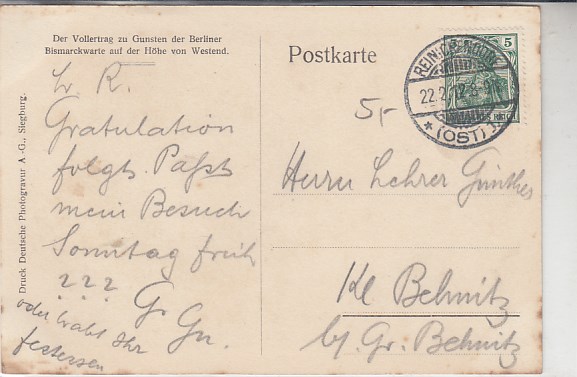 Der Vollertrag zu Gunsten der Berliner
Bismarckwarte auf der Höhe von Westend.
Postkarte
5
REINICKENDORF
22.2.12. 8-9
* (OST) 1.
5,-
L. R.
Gratulation
folgt. Paßt
mein Besuch
Sonntag früh
? ? ?
Gr. Gn.
oder habt Ihr
Herrn Lehrer Günther
Kl Behnitz
bei Gr. Behnitz
Druck Deutsche Photogravur A.-G., Siegburg.